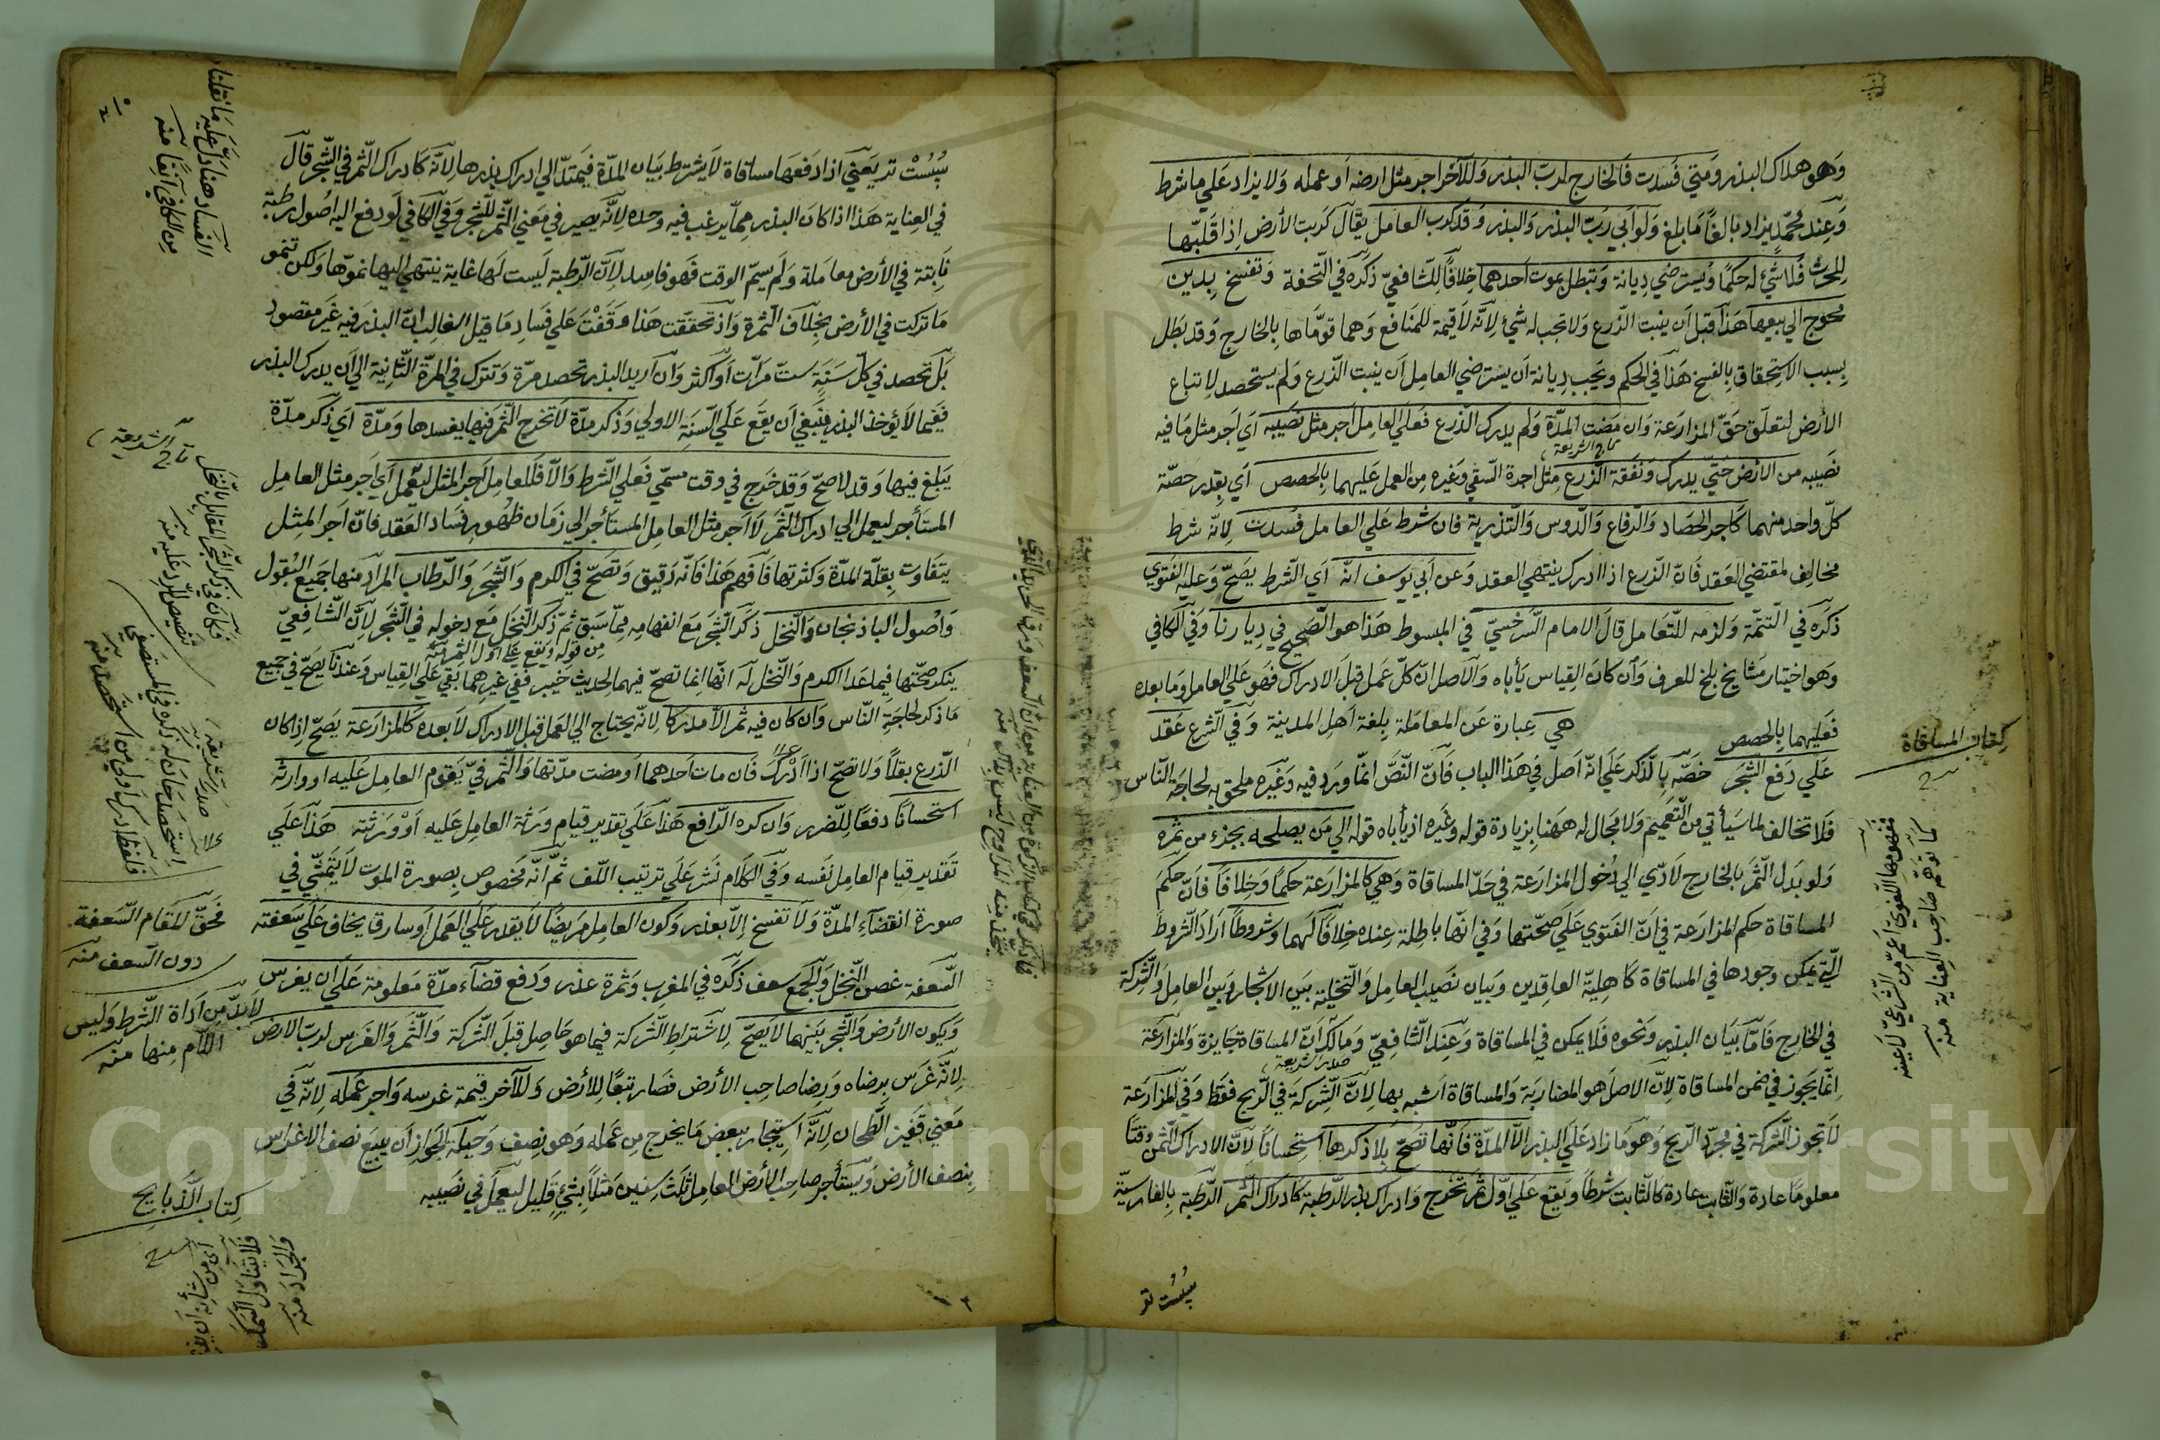 وهو هلاك البذر ومتي فسدت فالخارج لرب البذر وللآخر اجر مثل ارضه او عمله ولا يزاد علي ما شرط
وعند محمد يزاد بالغا ما بلغ ولو ابي رب البذر والبذر وقد كرب العامل يقال كربت الأرض اذا قلبتها
للحرث فلا شئ له حكما ويسترضي ديانة وتبطل بموت احدهما خلافا للشافعي ذكره في التحفة وتفسخ بدين
محوج الي بيعها هذا قبل ان ينبت الزرع ولا تجب له شئ لانه لا قيمة للمنافع وهما قوماها بالخارج وقد بطل
بسبب الاستحقاق بالفسخ هذا في الحكم ويجب ديانة ان يسترضي العامل ان ينبت الزرع ولم يستحصد لا تباع
الأرض لتعلق حق المزارعة وان مضت المدة ولم يدرك الزرع فعلي العامل اجر مثل نصيبه اي اجر مثل ما فيه
تاج الشريعة
نصيبه من الارض حتي يدرك ونفقة الزرع مثل اجرة السقي وغيره من العمل عليهما بالحصص اي بقدر حصة
كل واحد منهما كاجر الحصاد والرفاع والدوس والتذرية فان شرط علي العامل فسدت لانه شرط
مخالف لمقتضي العقد فان الزرع اذا ادرك ينتهي العقد وعن ابي يوسف انه اي الشرط يصح وعليه الفتوي
ذكره في التتمة ولزمه للتعامل قال الامام السرخسي في المبسوط هذا هو الصحيح في ديارنا وفي الكافي
وهو اختيار مشايخ بلخ للعرف وان كان القياس يأباه والاصل ان كل عمل قبل الادراك فهو علي العامل وما بعده
فعليهما بالحصص هي عبارة عن المعاملة بلغة اهل المدينة وفي الشرع عقد
علي دفع الشجر خصه بالذكر علي انه اصل في هذا الباب فان النص انما ورد فيه وغيره ملحق به لحاجة الناس
فلا تخالف لما سيأتي من التعميم ولا مجال له ههنا بزيادة قوله وغيره اذ يأباه قوله الي من يصلحه بجزء من ثمره
ولو بدل الثمر بالخارج لادي الي دخول المزارعة في حد المساقاة وهي كالمزارعة حكما وخلافا فان حكم
المساقاة حكم المزارعة في ان الفتوي علي صحتها وفي انها باطلة عنده خلافا لهما وشروطا اراد الشروط
التي يمكن وجودها في المساقاة كاهلية العاقدين وبيان نصيب العامل والتخلية بين الاشجار وبين العامل والشركة
في الخارج فاما بيان البذر ونحوه فلا يمكن في المساقاة وعند الشافعي ومالك ان المساقاة جايزة والمزارعة
صدر الشريعة
انما يجوز في ضمن المساقاة لان الاصل هو المضاربة والمساقاة اشبه بها لان الشركة في الربح فقط وفي المزارعة
لا تجوز الشركة في مجرد الربح وهو ما زاد علي البذر الا المدة فانها تصح بلا ذكرها استحسانا لان الادراك الثمن وقتا
معلوما عادة والثابت عادة كالثابت شرطا ويقع علي اول ثمر تخرج وادراك بذر الرطبة كادراك الثمر الرطبة بالفارسية
سپست تر
كتاب المساقاة
مفهومها اللغوي اعم من الشرعي لا عينه
كما توهمه صاحب العناية منه
سپست تر يعني اذا دفعها مساقاة لا يشترط بيان المدة فيمتد الي ادراك بذرها لانه كادراك الثمر في الشجر قال
في العناية هذا اذا كان البذر مما يرغب فيه وحده لانه يصير في معني الثمر للشجر وفي الكافي لو دفع اليه اصول رطبة
نابتة في الأرض معاملة ولم يسم الوقت فهو فاسد لان الرطبة ليست لها غاية ينتهي اليها نموها ولكن تنمو
ما تركت في الأرض بخلاف الثمرة واذ تحققت هذا وقفت علي فساد ما قيل الغالب ان البذر فيه غير مقصود
بل تحصد في كل سنة ست مرات او اكثر وان اريد البذر تحصد مرة وتترك في المرة الثانية الي ان يدرك البذر
ففيما لا يؤخذ البذر ينبغي ان يقع علي السنة الاولي وذكر مدة لا تخرج الثمر فيها يفسدها ومدة اي ذكر مدة
يبلغ فيها وقد لا صح وقد خرج في وقت مسمي فعلي الشرط والا فللعامل اجر المثل ليعمل اي اجر مثل العامل
المستأجر ليعمل الي ادراك الثمر لا اجر مثل العامل المستأجر الي زمان ظهور فساد العقد فان اجر المثل
يتفاوت بقلة المدة وكثرتها فافهم هذا فانه دقيق وتصح في الكرم والشجر والرطاب المراد منها جميع البقول
واصول الباذنجان والنخل ذكر الشجر مع انفهامه مما سبق ثم ذكر النخل مع دخوله في الشجر لان الشافعي
من قوله ويقع علي اول الثمر منه
ينكر صحتها فيما عدا الكرم والنخل له انها انما تصح فيهما لحديث خيبر ففي غيرهما بقي علي القياس وعندنا يصح في جميع
ما ذكر لحاجة الناس وان كان فيه ثمر الا مدركا لانه يحتاج الي العمل قبل الادراك لا بعده كالمزارعة يصح اذا كان
الزرع بقلا ولا تصح اذا ادرك فان مات احدهما او مضت مدتها والثمر في يقوم العامل عليه او وارثه
استحسانا دفعا للضرر وان كره الدافع هذا علي تقدير قيام ورثة العامل عليه او ورثته هذا علي
تقدير قيام العامل نفسه وفي الكلام نشر علي ترتيب اللف ثم انه مخصوص بصورة الموت لا يتمشي في
صورة انقضاء المدة ولا تفسخ الا بعذر وكون العامل مريضا لا يقدر علي العمل او سارقا يخاف علي سعفته
السعفة غصن النخل والجمع سعف ذكره في المغرب وثمرة عذر ودفع فضاء مدة معلومة علي ان يغرس
ويكون الأرض والشجر بينهما لا يصح لاشتراط الشركة فيما هو حاصل قبل الشركة والثمر والغرس لرب الارض
لانه غرس برضاه ورضا صاحب الأرض فصار تبعا للأرض وللآخر قيمة غرسه واجر عمله لانه في
معني قفيز الطحان لانه استيجار ببعض ما يخرج من عمله وهو نصف وحيلة الجواز ان يبيع نصف الاغراس
بنصف الأرض ويستأجر صاحب الأرض العامل ثلث سنين مثلا بشئ قليل ليعمل في نصيبه
الفساد هنا دل عليه ما نقلنا
من الكافي آنفا منه
تاج الشريعة
فان في ذكر الشجر المقابل بالنخل
تنصيص للرد عليه منه
استحصد حان له ذكره في المستصفي
صدر شريعة
فحق المقام السعفة
دون السعف منه
لا بد من اداة الشرط وليس
اللام منها منه
كتاب الذبايح
فلا يتناول السمك
والجراد منه
Copyright © King Saud University